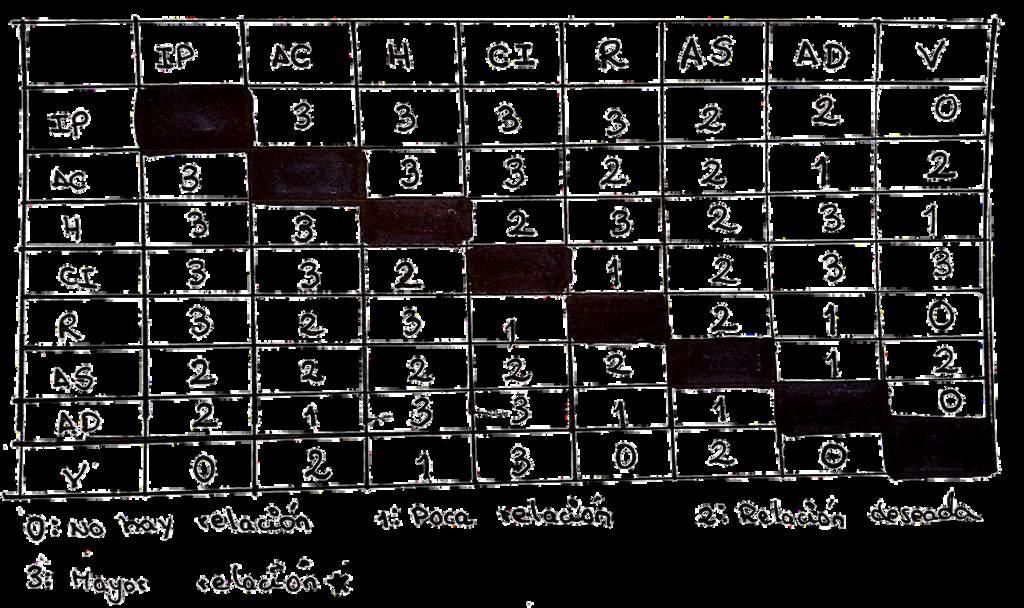 IP AC H CI R AS AD V
IP 3 3 3 3 2 2 0
AC 3 3 3 2 2 1 2
H 3 3 2 3 2 3 1
CI 3 3 2 1 2 3 3
R 3 2 3 1 2 1 0
AS 2 2 2 2 2 1 2
AD 2 1 3 3 1 1 0
V 0 2 1 3 0 2 0
0: No hay relación 1: Poca relación 2: Relación deseada
3: Mayor relación *